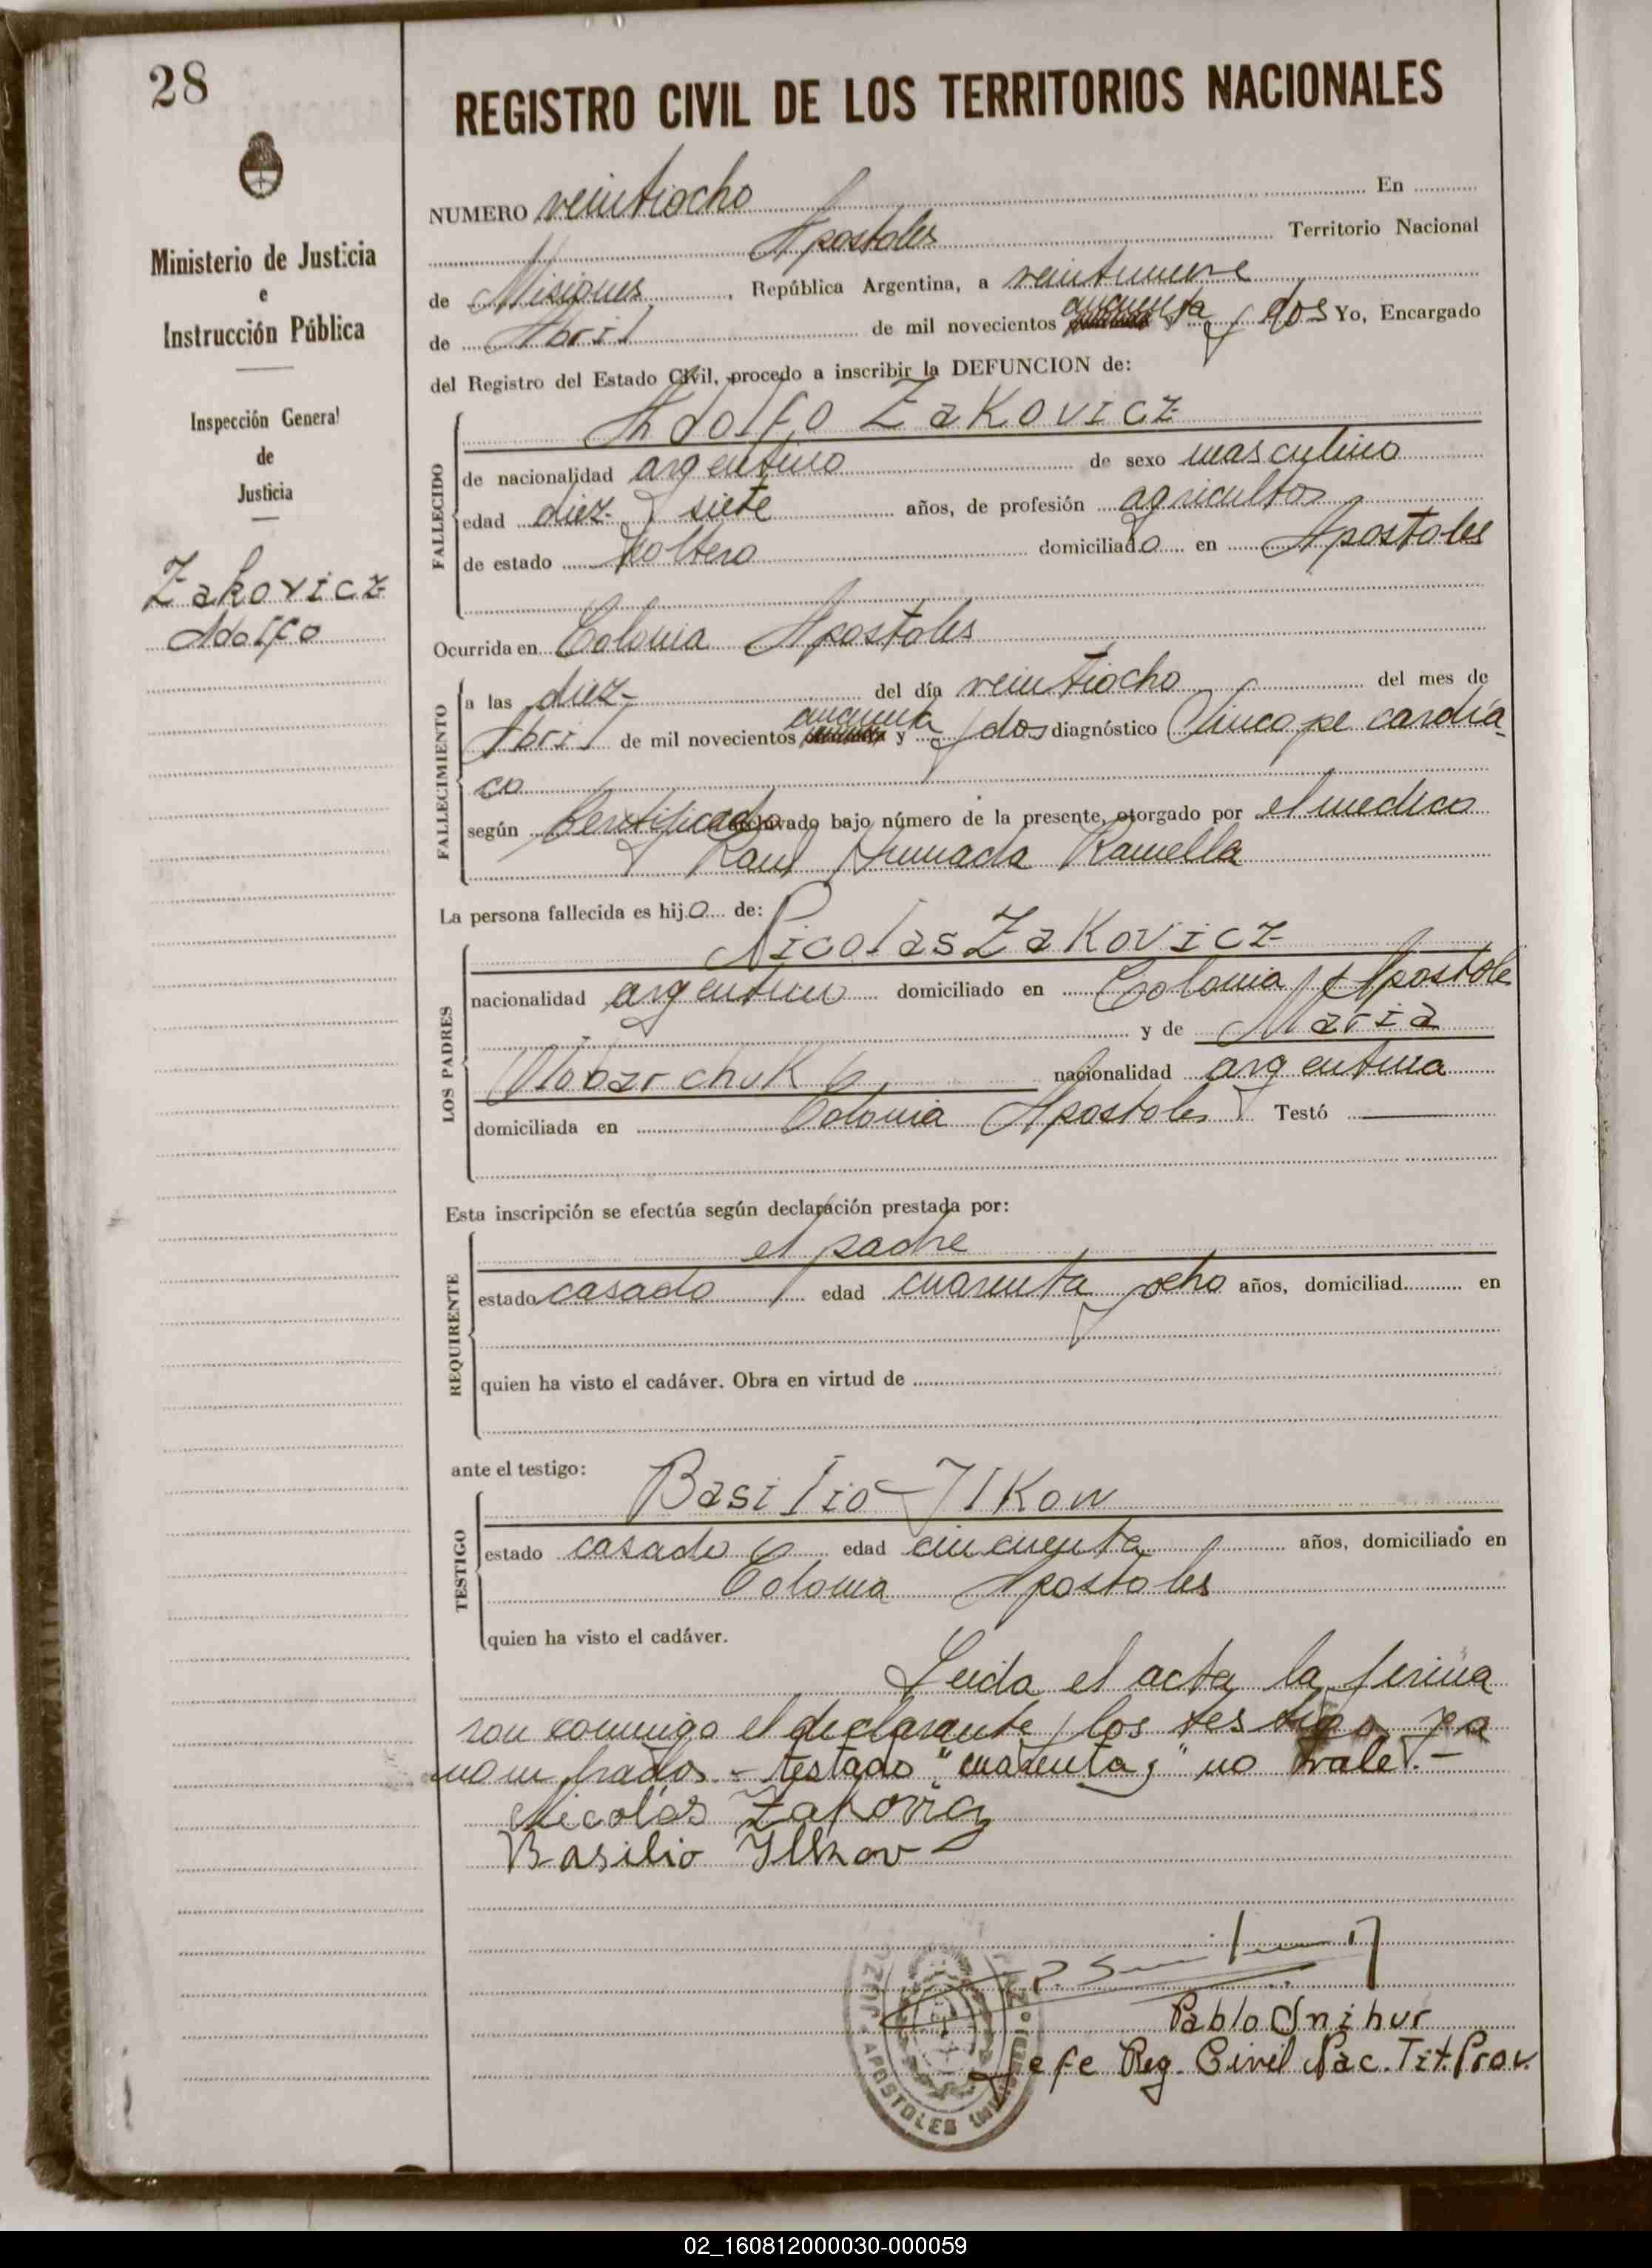 28
Ministerio de Justicia
e
Instrucción Pública
Inspección General
de
Justicia
Zakovicz
Adolfo
REGISTRO CIVIL DE LOS TERRITORIOS NACIONALES
NUMERO veintiocho En
Apostoles Territorio Nacional
de Misiones, República Argentina, a veintinueve
de Abril de mil novecientos cincuenta y dos Yo, Encargado
del Registro del Estado Civil, procedo a inscribir la DEFUNCION de:
Adolfo Zakovicz
FALLECIDO
de nacionalidad argentino de sexo masculino
edad diez y siete años, de profesión agricultor
de estado soltero domiciliado en Apostoles
Ocurrida en Colonia Apostoles
FALLECIMIENTO
a las diez- del día veintiocho del mes de
Abril de mil novecientos cincuenta y dos diagnóstico Sincope cardia-
co
según Certificado archivado bajo número de la presente, otorgado por el medico
Raul Ramella
La persona fallecida es hijo de:
Nicolas Zakovicz
LOS PADRES
nacionalidad argentino domiciliado en Colonia Apostole
y de Maria
nacionalidad argentina
domiciliada en Colonia Apostoles Testó
Esta inscripción se efectúa según declaración prestada por:
el padre
REQUIRENTE
estado casado edad cuarenta y ocho años, domiciliad en
quien ha visto el cadáver. Obra en virtud de
ante el testigo:
Basilio Ilkow
TESTIGO
estado casado edad cincuenta años, domiciliado en
Colonia Apostoles
quien ha visto el cadáver.
Leida el acta la firma
ron conmigo el declarante y los testigos ya
nombrados.- testado "cuarenta y" no vale.-
Nicolás Zakovicz
Basilio Ilkow
Pablo Snihur
Jefe Reg. Civil Nac. Tit. Prov.
APOSTOLES
02_160812000030-000059